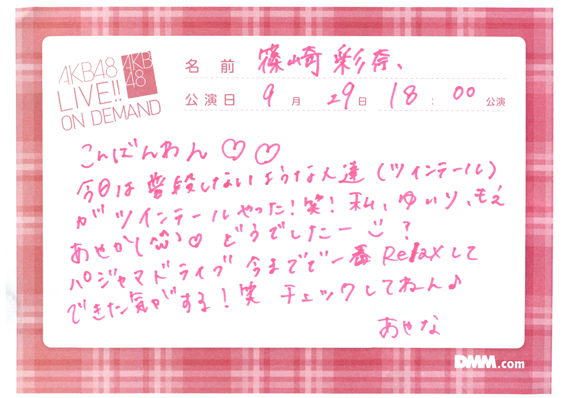 AKB48
LIVE!!
ON DEMAND
AKB
48
名前 篠崎彩奈、
公演日 9月29日 18:00公演
こんばんわん♡♡
今日は普段しないような人達(ツインテール)
がツインテールやった!笑!私、ゆいり、もえ
あせかく ♡ どうでしたー?
パジャマドライブ 今までで一番Relaxして
できた気がする!笑 チェックしてねん♪
あやな
DMM.com